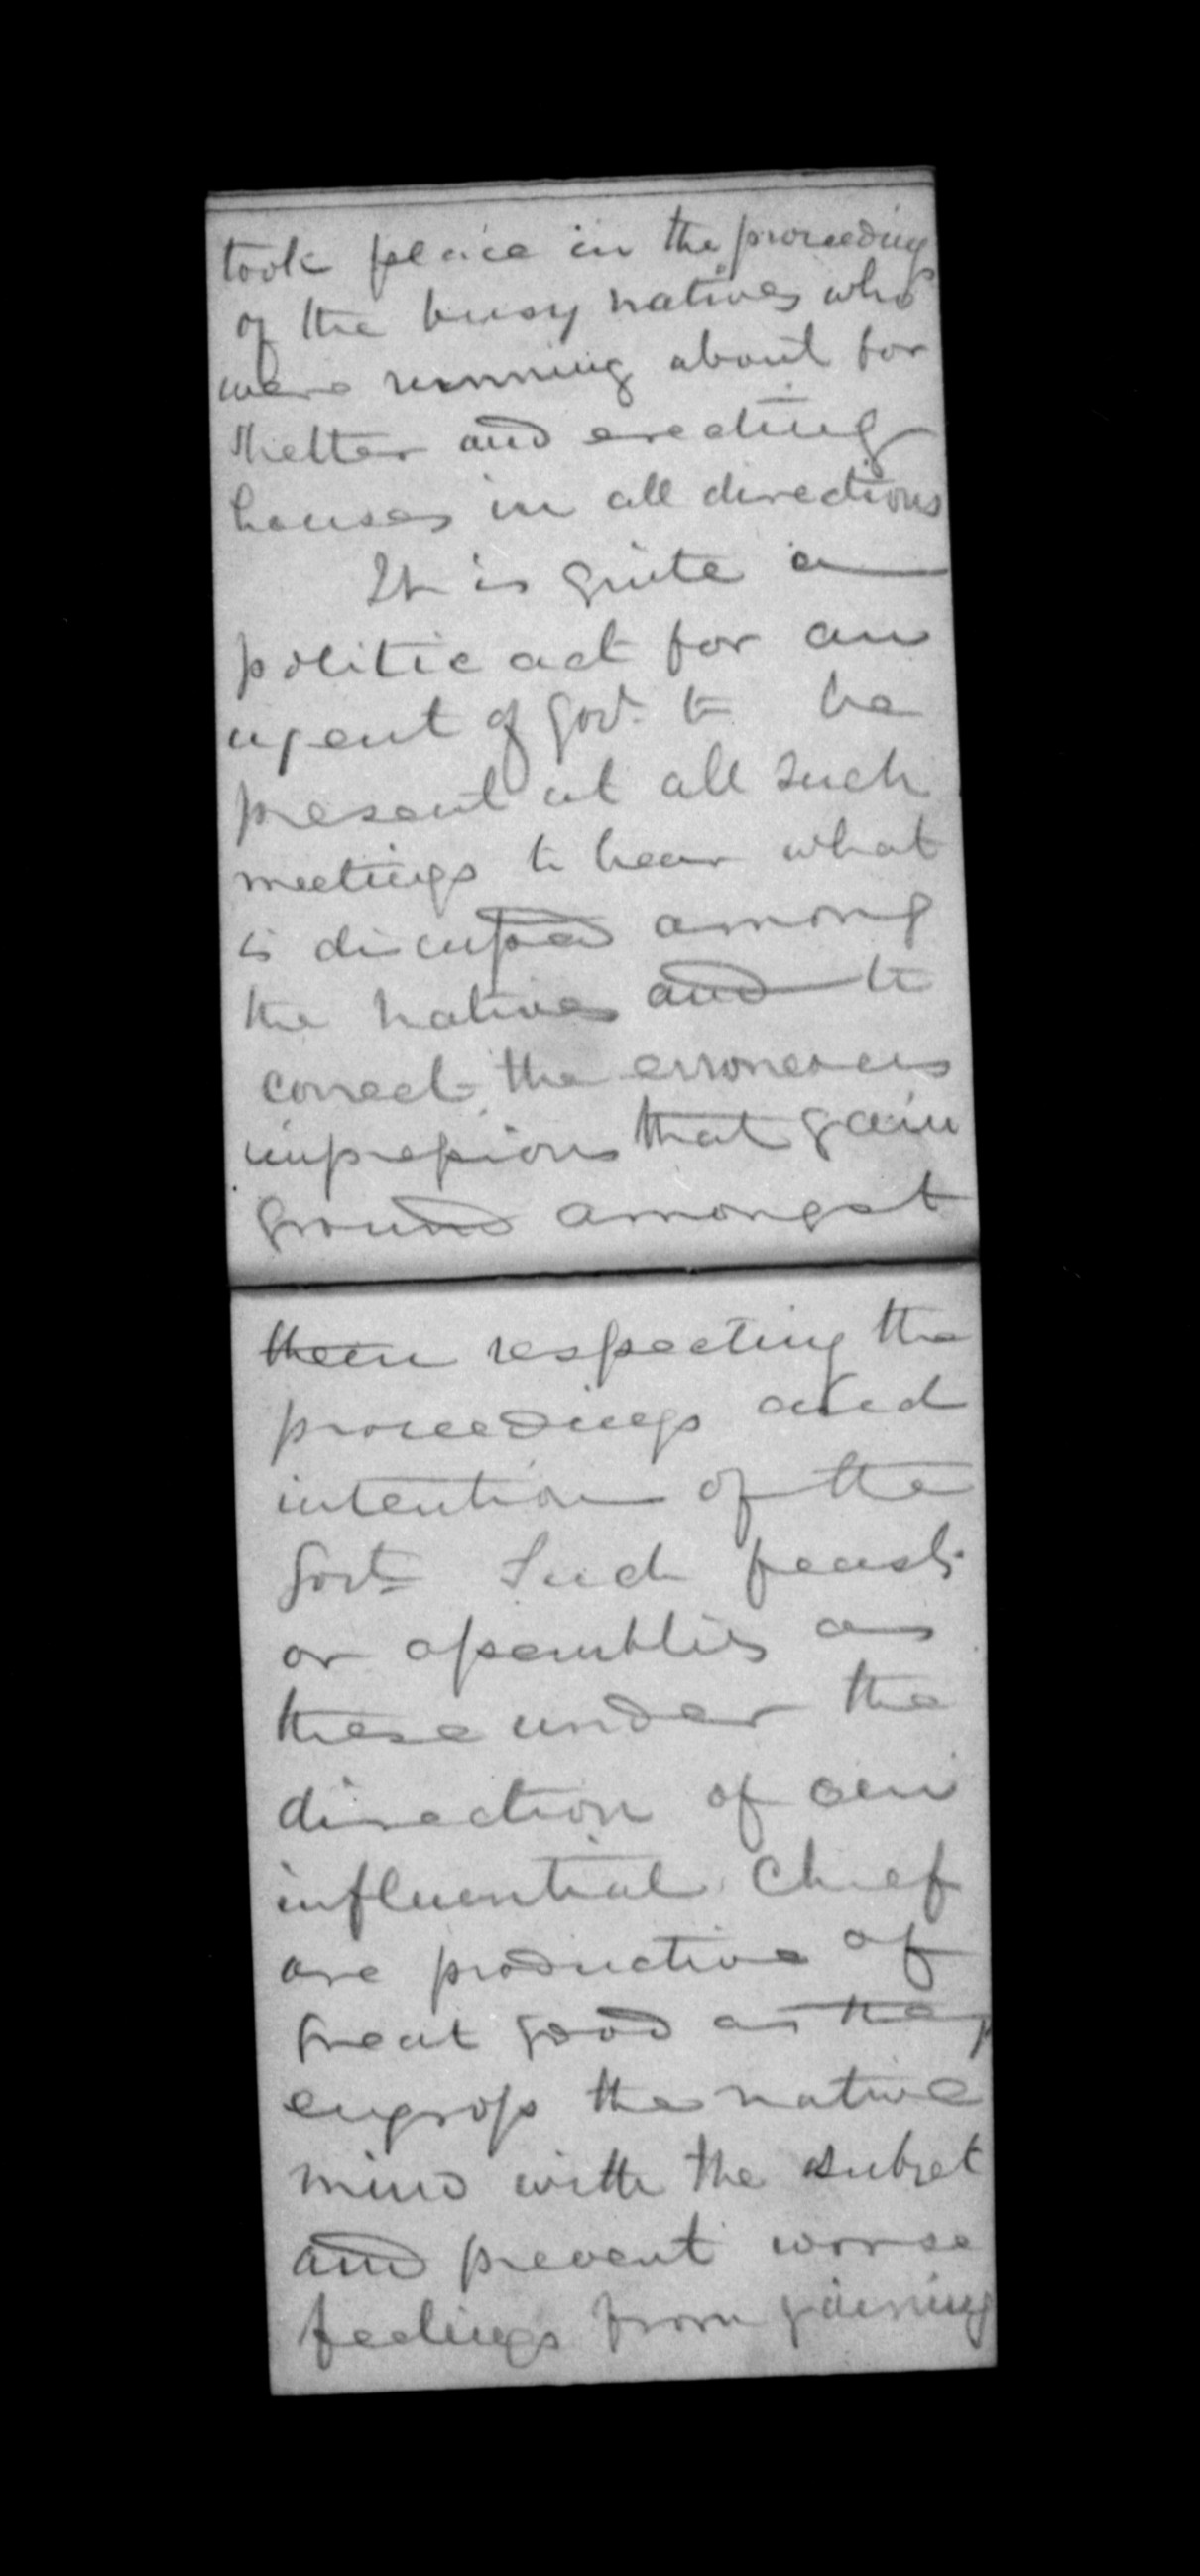 took place in the proceedings
of the busy natives who
were running about for
shelter and erecting
houses in all directions
It is quite a
politic act for an
agent of Govt. to be
present at all such
meetings to hear what
is discussed among
the natives and to
correct the erroneous
impressions that gain
ground amongst
them respecting the
proceedings and
intention of the
Govt Such feasts
or assemblies as
these under the
direction of an
influential Chief
are productive of
great good as they
engross the native
mind with the subjet
and prevent worse
feelings from gaining